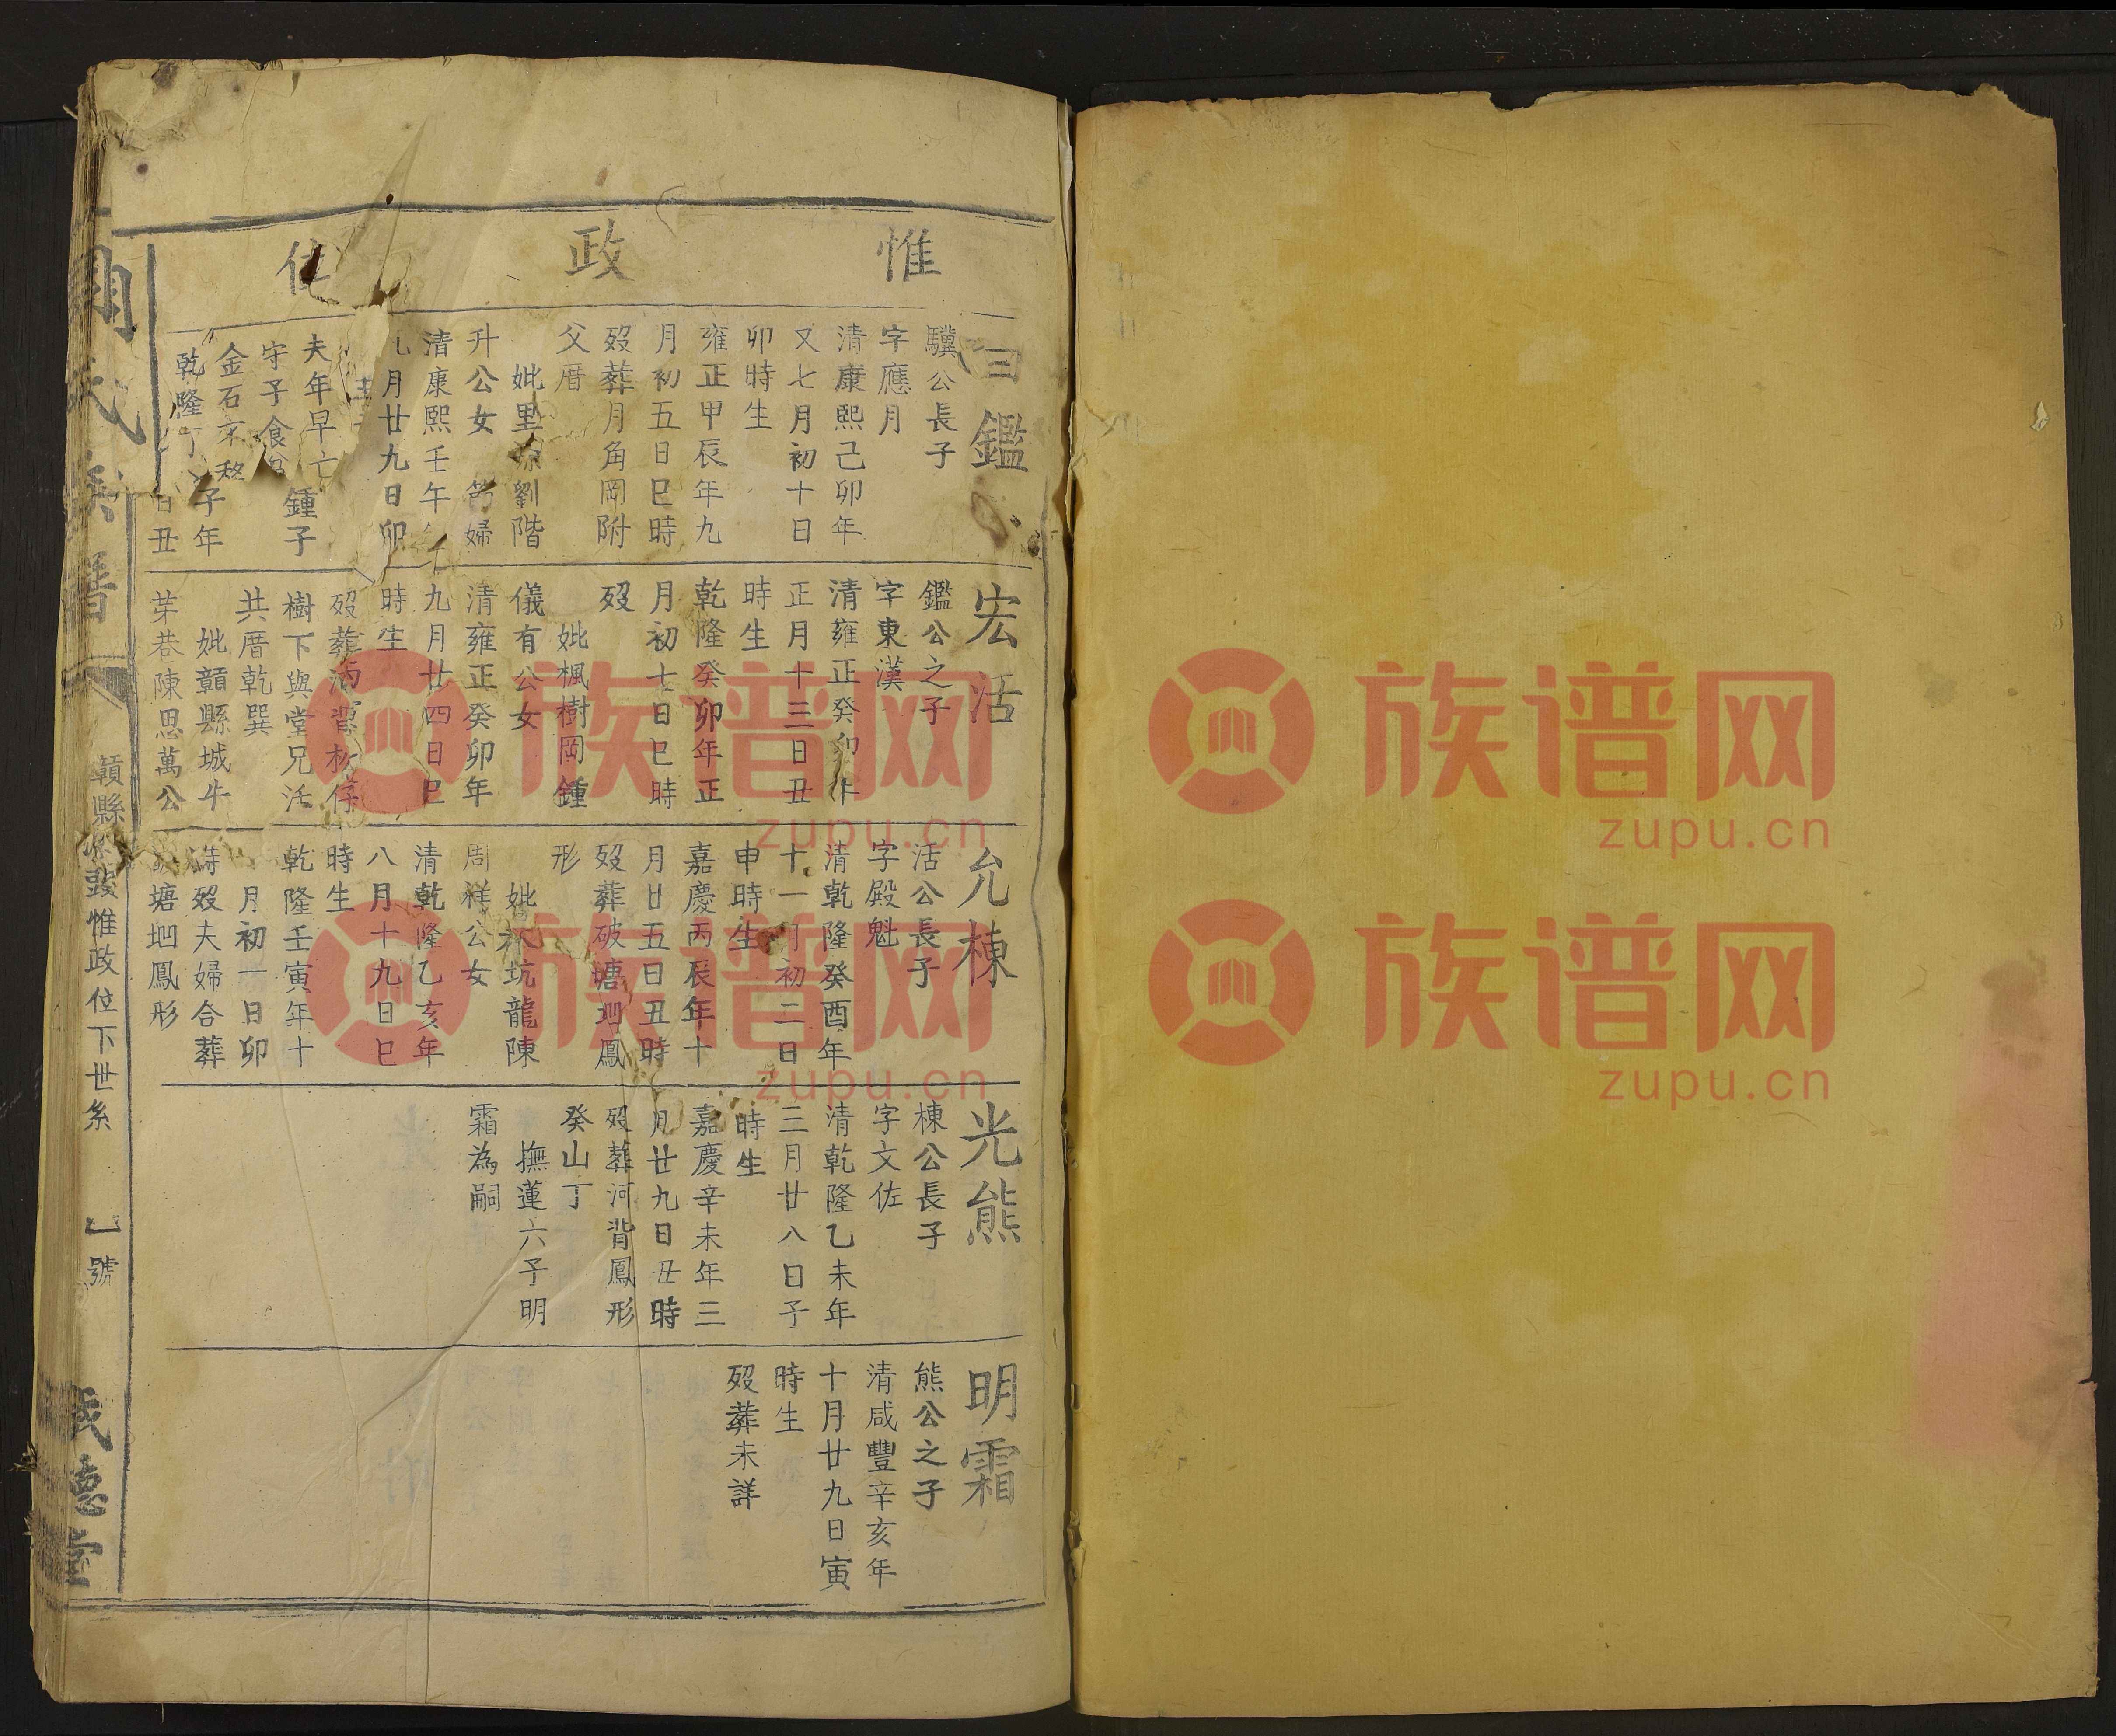 惟政位
鑑
驥公長子
字應月
清康熙己卯年
又七月初十日
卯時生
雍正甲辰年九
月初五日巳時
歿葬月角岡附
父厝
妣里源劉階
升公女 節婦
清康熙壬午年
九月廿九日卯
夫年早亡 鍾子
守子食
金石 子年
乾隆丁 日丑
宏活
鑑公之子
字東漢
清雍正癸卯年
正月十三日丑
時生
乾隆癸卯年正
月初七日巳時
歿
妣楓樹岡鍾
儀有公女
清雍正癸卯年
九月廿四日巳
時生
歿葬河背松仔
樹下與堂兄沃
共厝乾巽
妣贛縣城牛
芽巷陳思萬公
允棟
活公長子
字殿魁
清乾隆癸酉年
十一月初二日
申時生
嘉慶丙辰年十
月廿五日丑時
歿葬破塘坳鳳
形
妣 坑龍陳
周祥公女
清乾隆乙亥年
八月十九日巳
時生
乾隆壬寅年十
月初一日卯
時歿夫婦合葬
塘坳鳳形
光熊
棟公長子
字文佐
清乾隆乙未年
三月廿八日子
時生
嘉慶辛未年三
月廿九日丑時
歿葬河背鳳形
癸山丁
撫蓮六子明
霜為嗣
明霜
熊公之子
清咸豐辛亥年
十月廿九日寅
時生
歿葬未詳
氏族譜
贛縣 惟政位下世系
一號
德堂
族谱网
zupu.cn
族谱网
zupu.cn
族谱网
zupu.cn
族谱网
zupu.cn